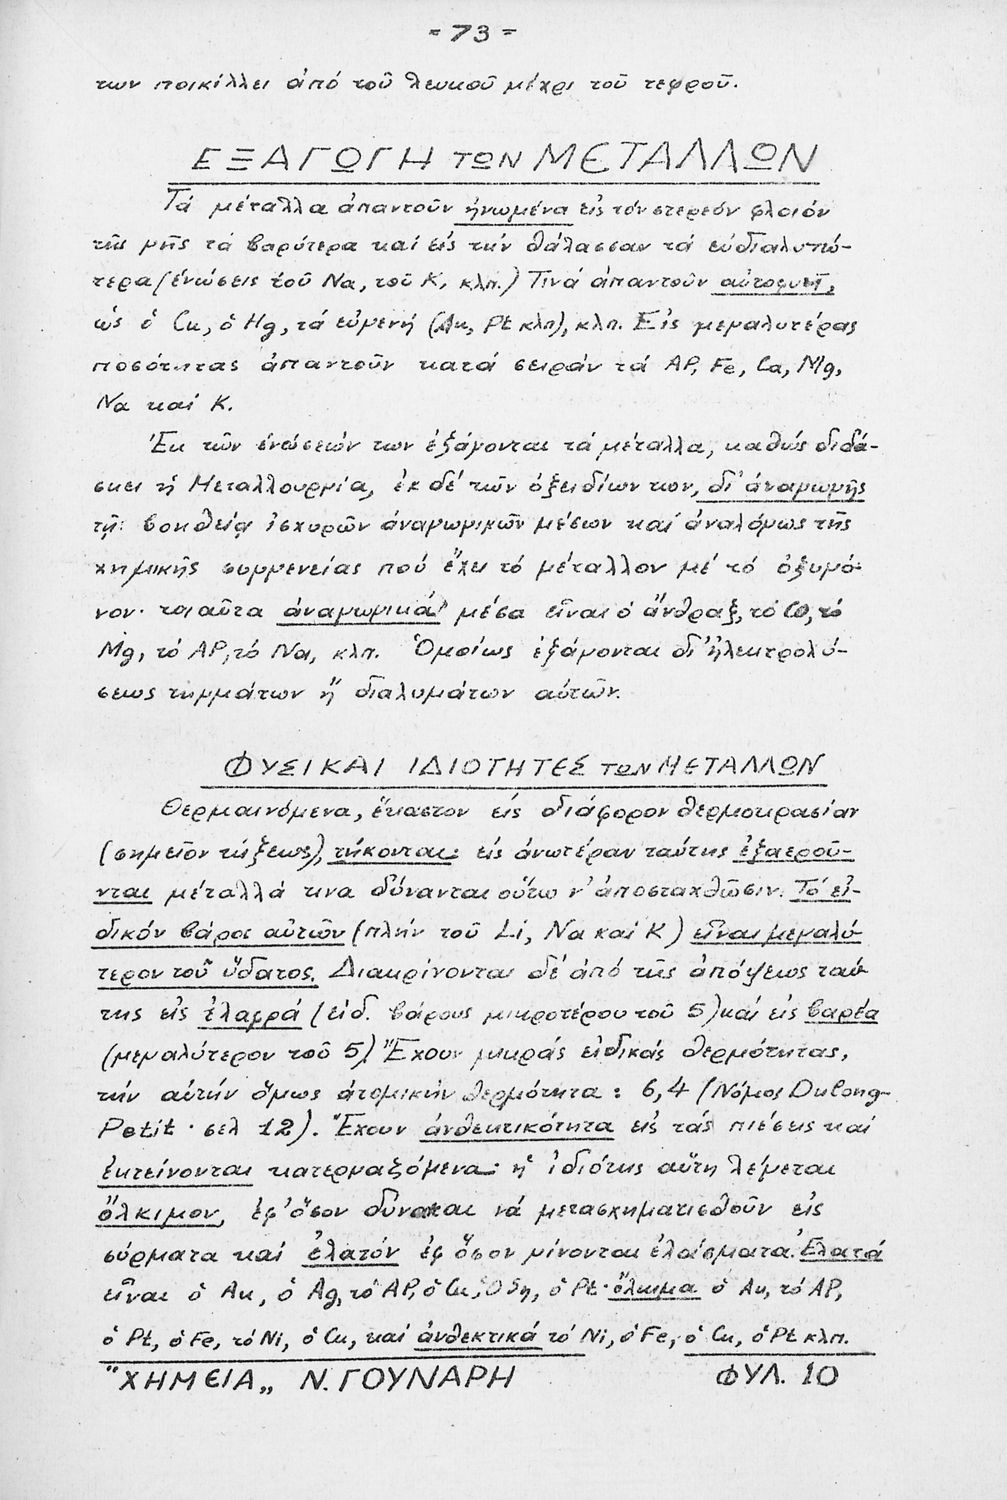 - 73 -
των ποικίλλει ἀπό τοῦ λευκοῦ μέχρι τοῦ τεφροῦ.
ΕΞΑΓΩΓΗ ΤΩΝ ΜΕΤΑΛΛΩΝ
Τά μέταλλα ἀπαντοῦν ἡνωμένα εἰς τόν στερεόν φλοιόν
τῆς γῆς τά βαρύτερα καί εἰς τήν θάλασσαν τά εὐδιαλυτώ-
τερα (ἑνώσεις τοῦ Na, τοῦ K, κλπ.) Τινά ἀπαντοῦν αὐτοφυῆ,
ὡς ὁ Cu, ὁ Hg, τά εὐγενῆ (Au, Pt κλπ), κλπ. Εἰς μεγαλυτέρας
ποσότητας ἀπαντοῦν κατά σειράν τά Al, Fe, Ca, Mg,
Na καί K.
Ἐκ τῶν ἑνώσεών των ἐξάγονται τά μέταλλα, καθώς διδά-
σκει ἡ Μεταλλουργία, ἐκ δέ τῶν ὀξειδίων των, δι' ἀναγωγῆς
τῇ βοηθείᾳ ἰσχυρῶν ἀναγωγικῶν μέσων καί ἀναλόγως τῆς
χημικῆς συγγενείας πού ἔχει τό μέταλλον μέ τό ὀξυγό-
νον· τοιαῦτα ἀναγωγικά μέσα εἶναι ὁ ἄνθραξ, τό CO, τό
Mg, τό Al, τό Na, κλπ. Ὁμοίως ἐξάγονται δι' ἠλεκτρολύ-
σεως τηγμάτων ἤ διαλυμάτων αὐτῶν.
ΦΥΣΙΚΑΙ ΙΔΙΟΤΗΤΕΣ ΤΩΝ ΜΕΤΑΛΛΩΝ
Θερμαινόμενα, ἕκαστον εἰς διάφορον θερμοκρασίαν
(σημεῖον τήξεως), τήκονται· εἰς ἀνωτέραν ταύτης ἐξαεροῦ-
νται μέταλλά τινα δύνανται οὕτω ν' ἀποσταχθῶσιν. Τό εἰ-
δικόν βάρος αὐτῶν (πλήν τοῦ Li, Na καί K) εἶναι μεγαλύ-
τερον τοῦ ὕδατος. Διακρίνονται δέ ἀπό τῆς ἀπόψεως ταύ-
της εἰς ἐλαφρά (εἰδ. βάρους μικροτέρου τοῦ 5) καί εἰς βαρέα
(μεγαλύτερον τοῦ 5) Ἔχουν μικράς εἰδικάς θερμότητας,
τήν αὐτήν ὅμως ἀτομικήν θερμότητα : 6,4 (Νόμος Dulong-
Petit · σελ 12). Ἔχουν ἀνθεκτικότητα εἰς τάς πιέσεις καί
ἐκτείνονται κατεργαζόμενα· ἡ ἰδιότης αὕτη λέγεται
ὅλκιμον, ἐφ' ὅσον δύναται νά μετασχηματισθοῦν εἰς
σύρματα καί ἐλατόν ἐφ ὅσον γίνονται ἐλάσματα. Ἐλατά
εἶναι ὁ Au, ὁ Ag, τό Al, ὁ Cu, ὁ Sn, ὁ Pt· ὅλκιμα ὁ Au, τό Al,
ὁ Pt, ὁ Fe, τό Ni, ὁ Cu, καί ἀνθεκτικά τό Ni, ὁ Fe, ὁ Cu, ὁ Pt κλπ.
"ΧΗΜΕΙΑ„ Ν. ΓΟΥΝΑΡΗ ΦΥΛ. 10